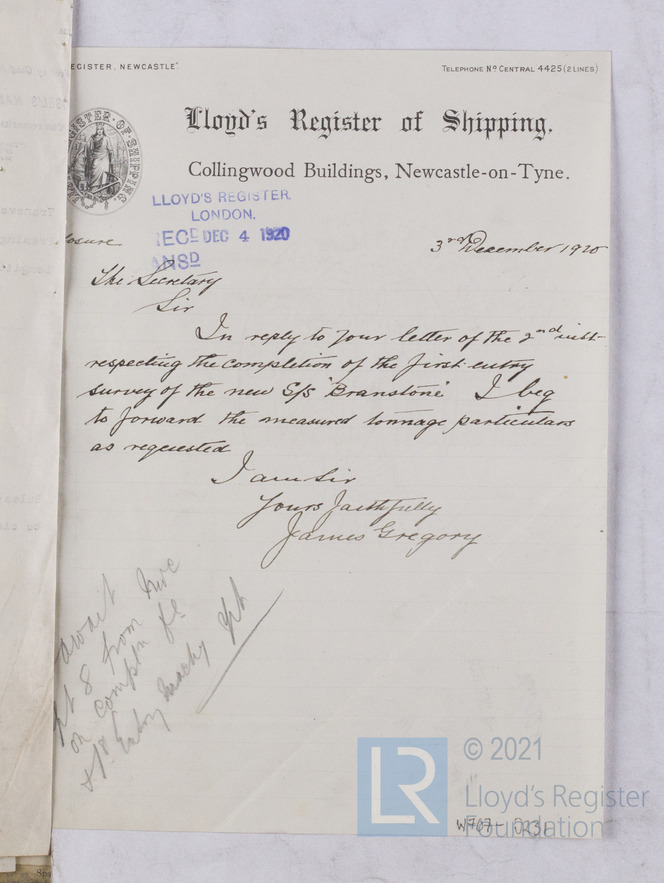 EGISTER, NEWCASTLE".
TELEPHONE No CENTRAL 4425 (2 LINES)
Lloyd's Register of Shipping.
Collingwood Buildings, Newcastle-on-Tyne.
LLOYD'S REGISTER.
LONDON.
RECD DEC 4 1920
ANSD
losure
3rd December 1920
The Secretary
Sir
In reply to your letter of the 2nd inst
respecting the completion of the first entry
survey of the new S/S "Branstone" I beg
to forward the measured tonnage particulars
as requested
I am Sir
Yours faithfully
James Gregory
await
8 from Nwc
on compln
Entry Machy Rpt
© 2021
LR
Lloyd's Register
Foundation
W707-0231